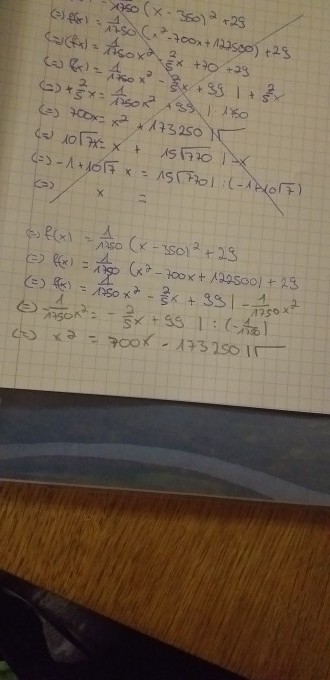 1750 (x - 350)² + 29
(=) f(x) = 1/1750 (x² - 700x + 122500) + 29
(=) f(x) = 1/1750 x² - 2/5 x + 70 + 29
(=) f(x) = 1/1750 x² - 2/5 x + 99 | + 2/5 x
(=) + 2/5 x = 1/1750 x² + 99 | · 1750
(=) 700x = x² + 173250 | √
(=) 10√7x = x + 15√770 | - x
(=) -1+10√7 x = 15√770 | : (-1+10√7)
(=) x =
(=) f(x) = 1/1750 (x - 350)² + 29
(=) f(x) = 1/1750 (x² - 700x + 122500) + 29
(=) f(x) = 1/1750 x² - 2/5 x + 99 | - 1/1750 x²
(=) 1/1750 x² = - 2/5 x + 99 | : (- 1/1750)
(=) x² = 700x - 173250 | √